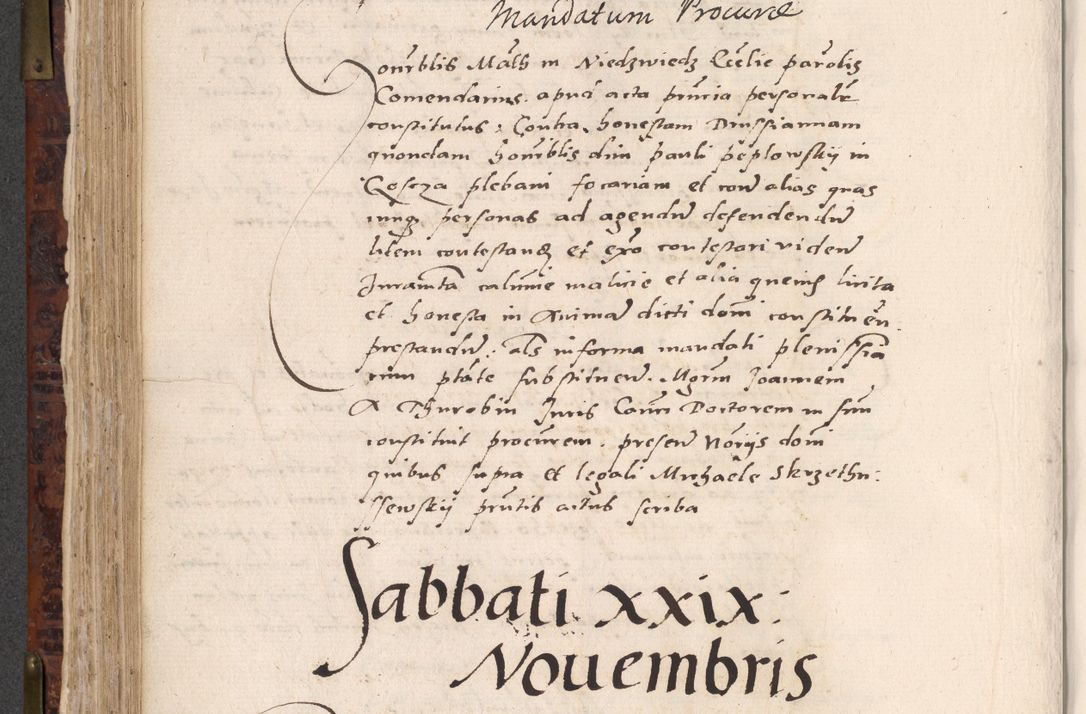 Mandatum Procurae
Honrblis Math in Niedzwiedz Ecclie parolis
Comendarius apud acta pnria personalr
constitutus, Contra honestam Drussiannam
quondam honrblis dni pauli peplowsky in
Goscza plebani focariam et cone alias quas
cunq personas ad agendu defendendu
litem contestand et exo contestari viden
Juramta calunie malicie et alia quevis licita
et honesta in Animam dicti domi constituen
prestandu, Als in forma mandati plenissia
cum ptate substituen. Mgrum Joannem
A Thurobin Juris Canci Doctorem in suu
constituit procurem. presen Norijs domi
quibus supra et legali Michaele Skrzethu:
ssewskij pntis actus scriba
Sabbati xxix:
Nouembris